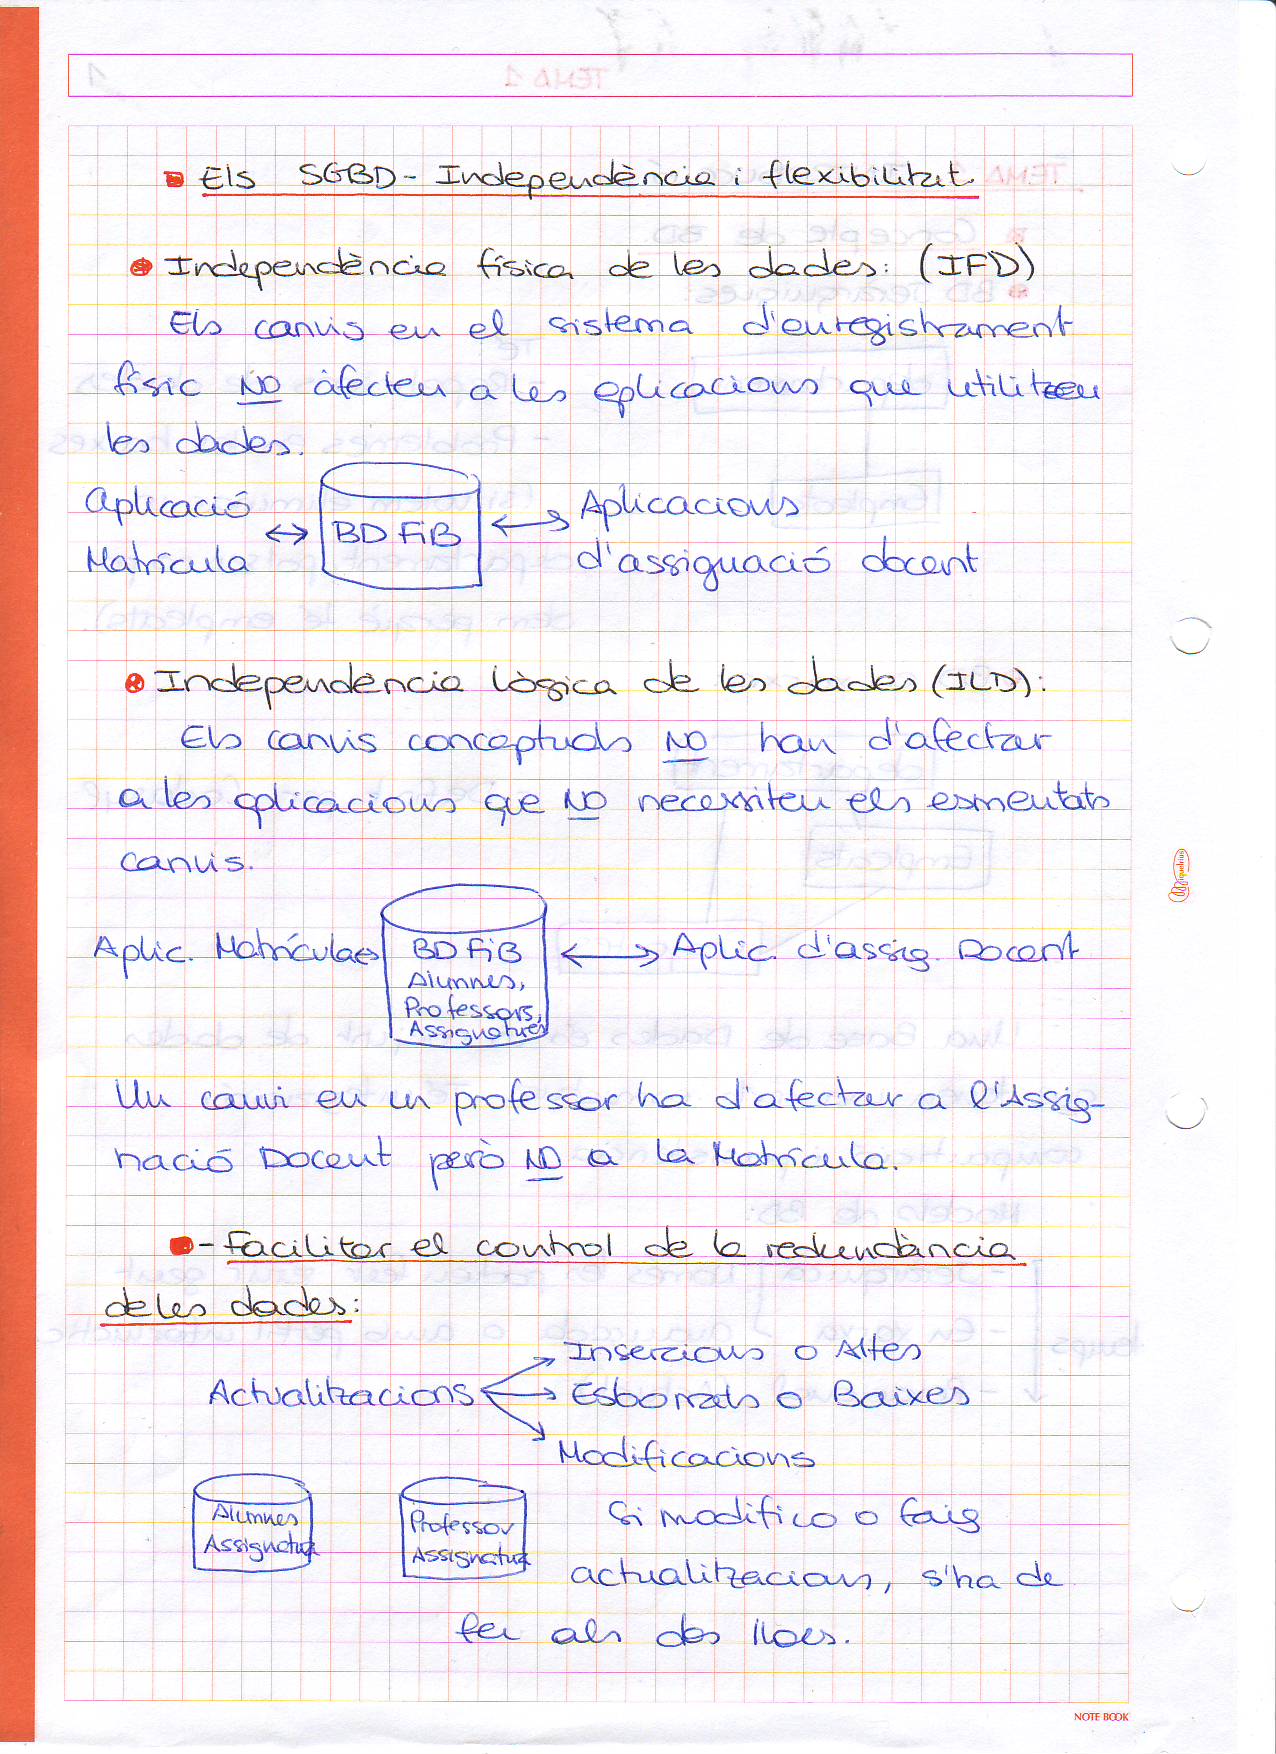 Els SGBD - Independència i flexibilitat.
Independència física de les dades: (IFD)
Els canvis en el sistema d'enregistrament
físic NO àfecten a les aplicacions que utilitzen
les dades.
Aplicació
Matrícula
BD FiB
Aplicacions
d'assignació docent
Independència lògica de les dades (ILD):
Els canvis conceptuals NO han d'afectar
a les aplicacions que NO necessiten els esmentats
canvis.
Aplic. Matrícula
BD FiB
Alumnes,
Professors,
Assignatures
Aplic. d'assig. Docent
Un canvi en un professor ha d'afectar a l'Assig-
nació Docent però NO a la Matrícula.
- Facilitar el control de la redundància
de les dades:
Actualitzacions
Insercions o Altes
Esborrats o Baixes
Modificacions
Alumnes
Assignatura
Professor
Assignatura
Si modifico o faig
actualitzacions, s'ha de
fer als dos llocs.
NOTE BOOK